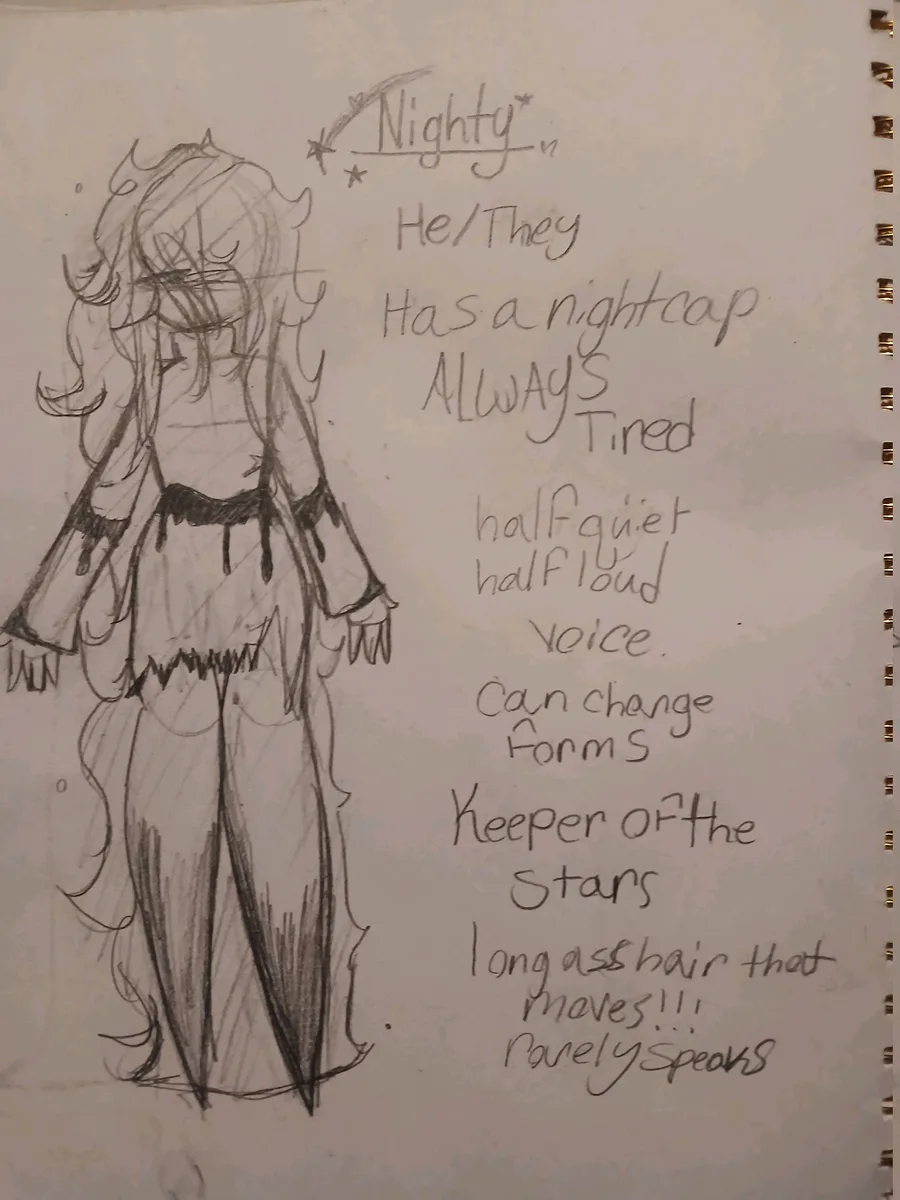 Nighty
He/They
Has a nightcap
ALWAYS
Tired
half quiet
half loud
voice.
Can change
Forms
Keeper of the
Stars
long ass hair that
moves!!!
rarely speaks